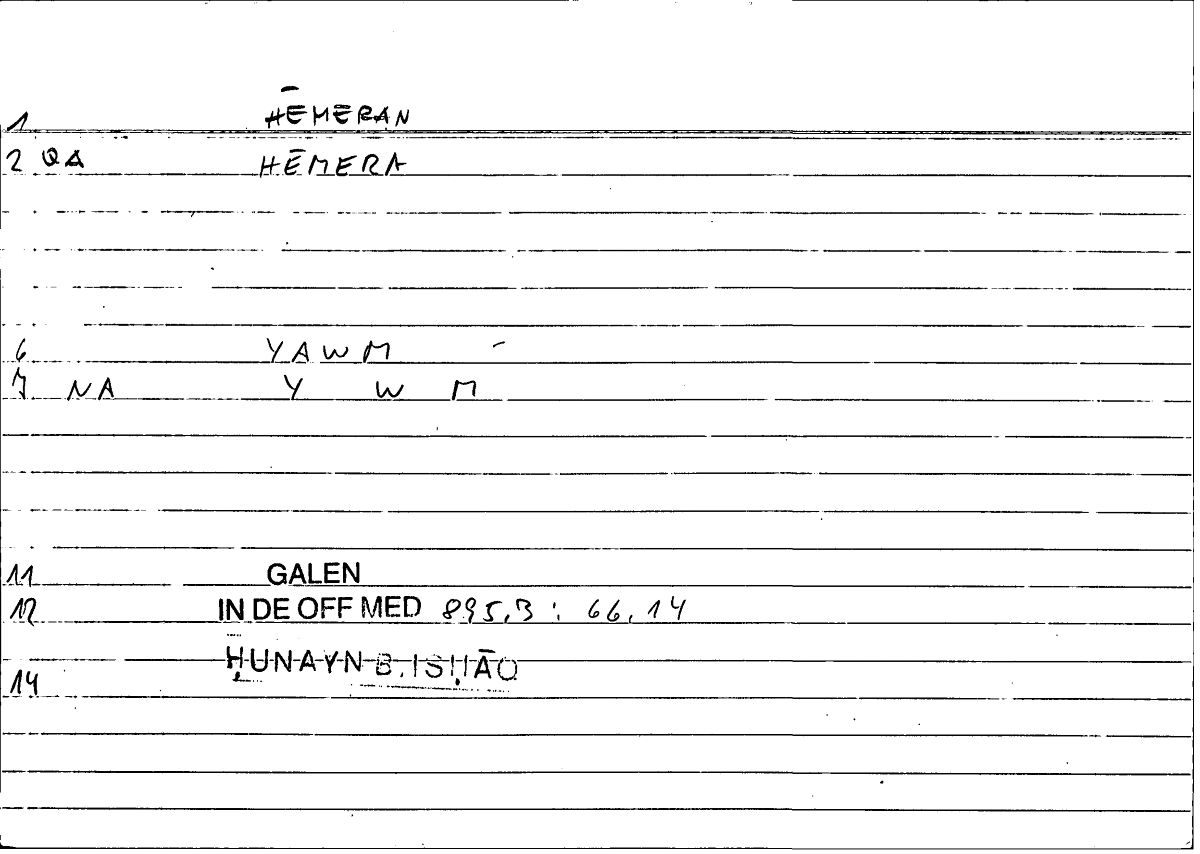 1 HĒMERAN
2 QA HĒMERA
6 YAWM
7 NA Y W M
11 GALEN
12 IN DE OFF MED 895,3 : 66,14
ḤUNAYN B. ISḤĀQ
14